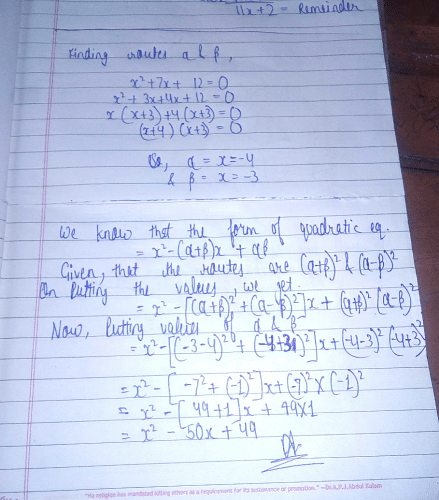 11x+2 = Remainder
Finding routes α & β,
x²+7x+ 12=0
x²+ 3x+4x+12=0
x(x+3)+4(x+3)=0
(x+4)(x+3)=0
So, α = x=-4
& β = x = -3
We know that the form of quadratic eq.
= x²-(α+β)x + αβ
Given, that the routes are (α+β)² & (α-β)²
On Putting the values, we get.
= x² - [(α+β)²+(α-β)²]x + (α+β)² (α-β)²
Now, Putting values of α & β
= x²-[(-3-4)² + (-4+3)²]x+(-4-3)² (-4+3)²
= x² - [-7²+(-1)²]x+(-7)²X(-1)²
= x² - [49+1]x + 49X1
= x² - 50x + 49
"No religion has mandated killing others as a requirement for its sustenance or promotion." -Dr.A.P.J.Abdul Kalam